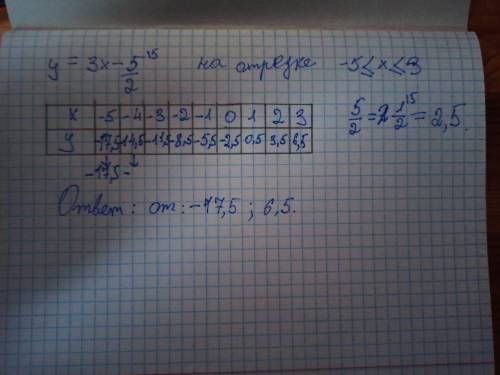 y = 3x - 5/2 ¹⁵ на отрезке -5 ≤ x ≤ 3
x -5 -4 -3 -2 -1 0 1 2 3
y -17,5 -14,5 -11,5 -8,5 -5,5 -2,5 0,5 3,5 6,5
5/2 = 2 1/2 ¹⁵ = 2,5.
-17,5 -
Ответ: от: -17,5 ; 6,5.